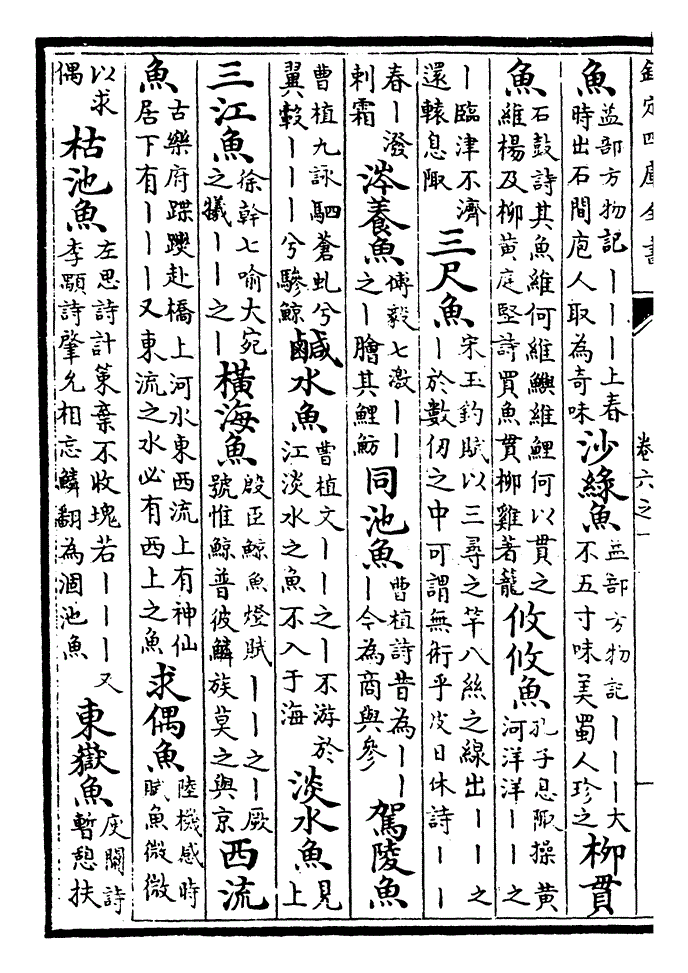 欽定四庫全書 卷六之一
魚 益部方物記｜｜｜上春時出石間庖人取為奇味 沙綠魚 益部方物記｜｜｜大不五寸味美蜀人珍之 柳貫
魚 石鼓詩其魚維何維鱮維鯉何以貫之維楊及柳黃庭堅詩買魚貫柳雞著籠 攸攸魚 孔子息陬操黃河洋洋｜｜之
｜臨津不濟還轅息陬 三尺魚 宋玉釣賦以三尋之竿八絲之線出｜｜之｜於數仞之中可謂無術乎皮日休詩｜｜
春｜潑刺霜 涔養魚 傅毅七激｜｜之｜膾其鯉魴 同池魚 曹植詩昔為｜｜｜今為商與參 駕陵魚
曹植九詠駟蒼虬兮翼轂｜｜｜兮驂鯨 鹹水魚 曹植文｜｜之｜不游於江淡水之魚不入于海 淡水魚 見上
三江魚 徐幹七喻大宛之犧｜｜之｜ 橫海魚 殷臣鯨魚燈賦｜｜之｜厥號惟鯨普彼鱗族莫之與京 西流
魚 古樂府蹀躞赴橋上河水東西流上有神仙居下有｜｜｜又東流之水必有西上之魚 求偶魚 陸機感時賦魚微微
以求偶 枯池魚 左思詩計策棄不收塊若｜｜｜又李顒詩肇允相忘鱗翻為涸池魚 東嶽魚 庾闡詩暫憩扶